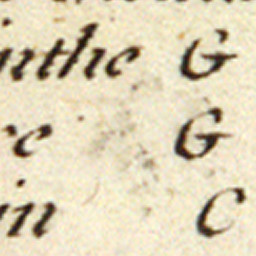 inthe G
re G
in C